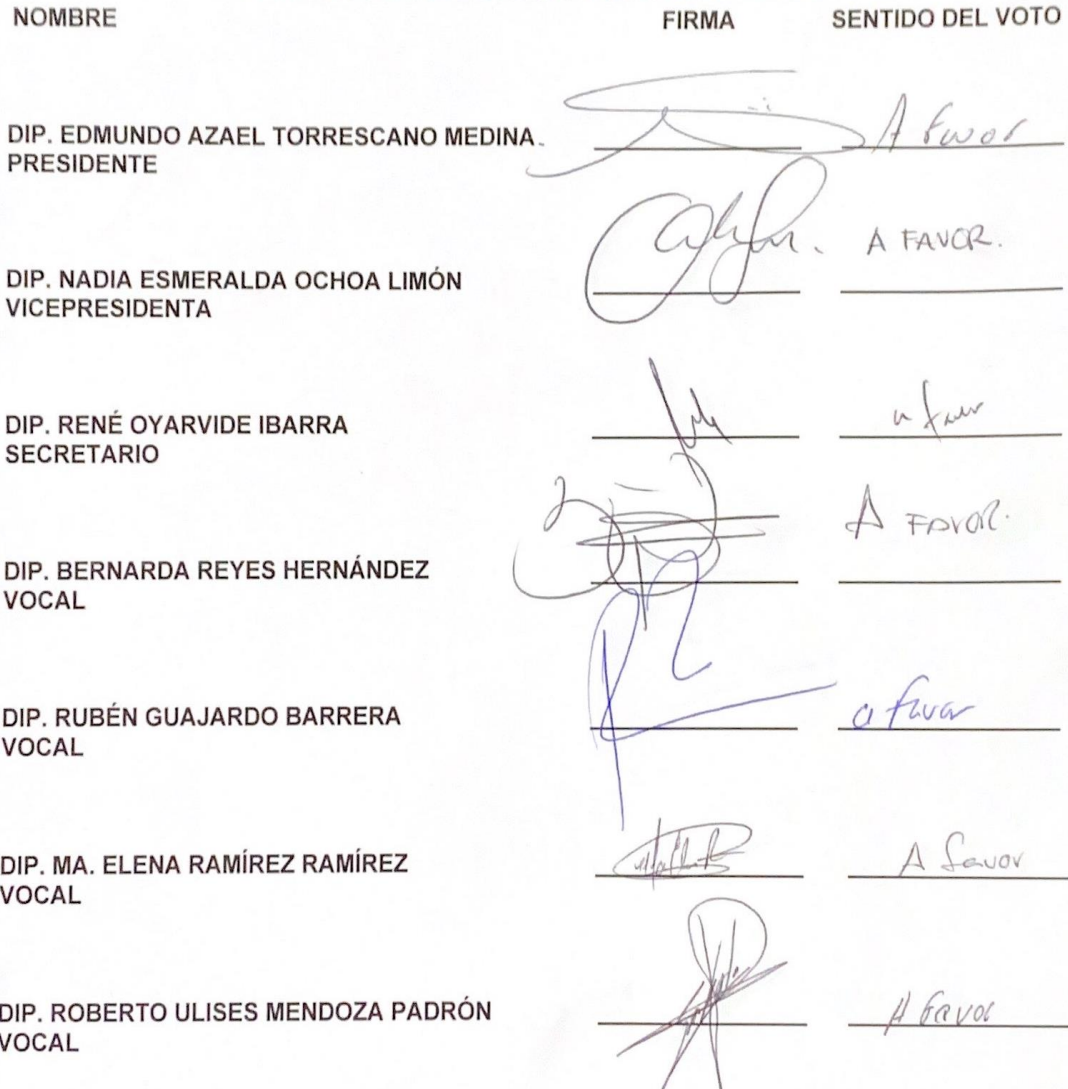 NOMBRE FIRMA SENTIDO DEL VOTO
DIP. EDMUNDO AZAEL TORRESCANO MEDINA A Favor
PRESIDENTE
A FAVOR.
DIP. NADIA ESMERALDA OCHOA LIMÓN
VICEPRESIDENTA
DIP. RENÉ OYARVIDE IBARRA a favor
SECRETARIO
A FAVOR.
DIP. BERNARDA REYES HERNÁNDEZ
VOCAL
DIP. RUBÉN GUAJARDO BARRERA a favor
VOCAL
DIP. MA. ELENA RAMÍREZ RAMÍREZ A favor
VOCAL
DIP. ROBERTO ULISES MENDOZA PADRÓN A favor
VOCAL